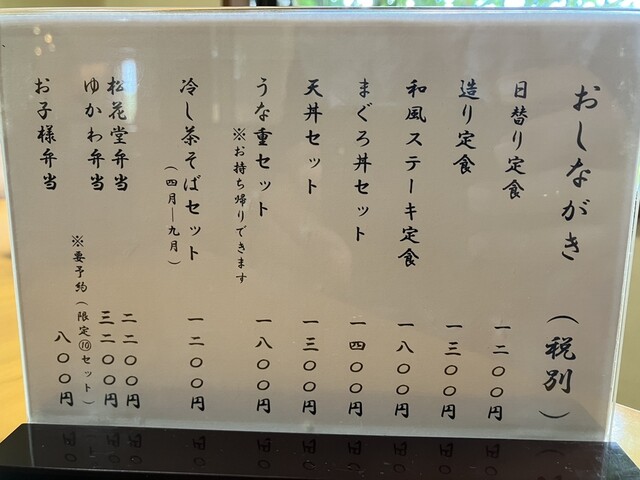 おしながき（税別）
日替り定食 一二〇〇円
造り定食 一三〇〇円
和風ステーキ定食 一八〇〇円
まぐろ丼セット 一四〇〇円
天丼セット 一三〇〇円
うな重セット 一八〇〇円
※お持ち帰りできます
冷し茶そばセット 一二〇〇円
（四月―九月）
松花堂弁当 二二〇〇円
ゆかわ弁当 三二〇〇円
※要予約（限定⑩セット）
お子様弁当 八〇〇円